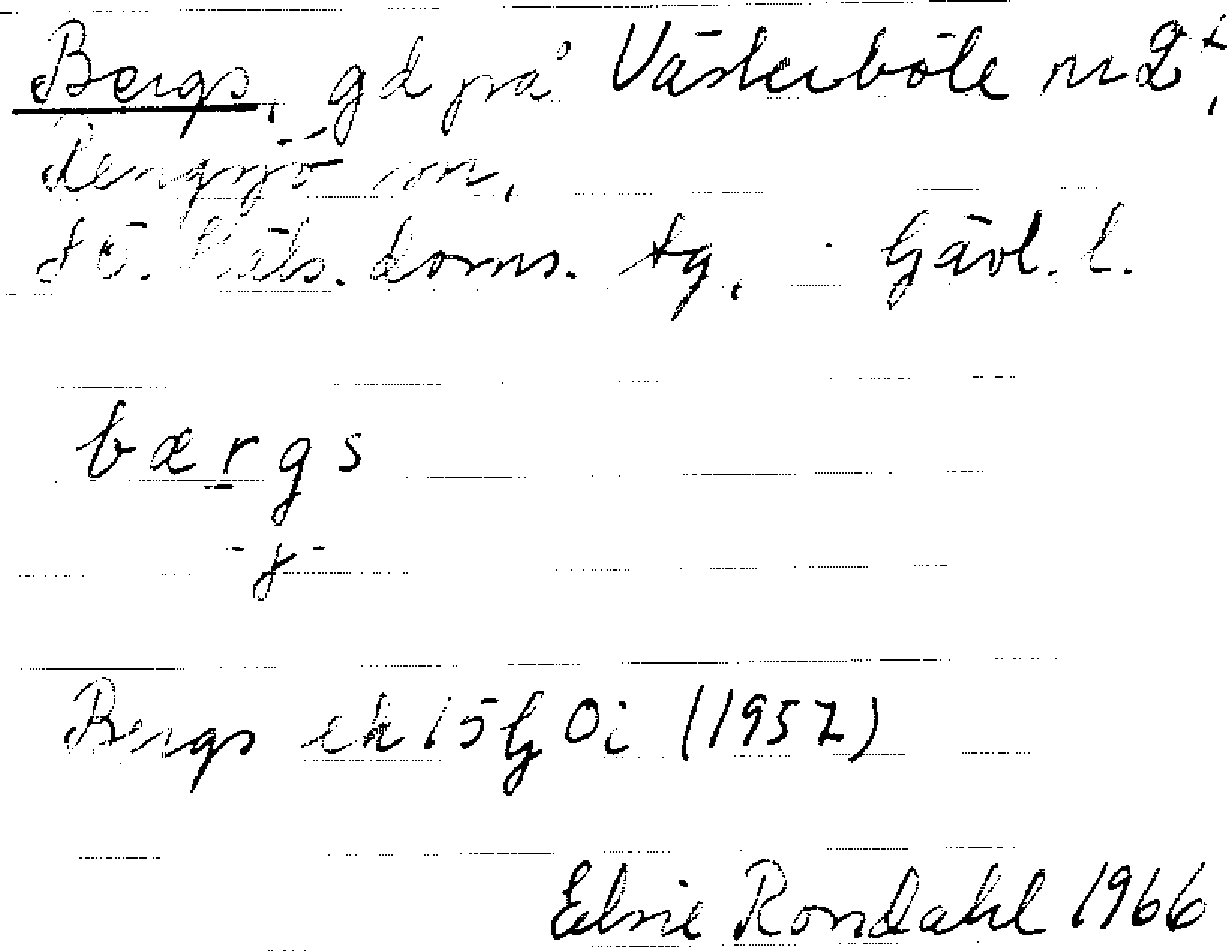 Bergs, gd på Västerböle nr 2⁺,
Rengsjö sn,
s. Häls. doms. tg, Gävl. l.
bærgs
-ɣ-
Bergs ek 15 G 0i (1957)
Elsie Rondahl 1966